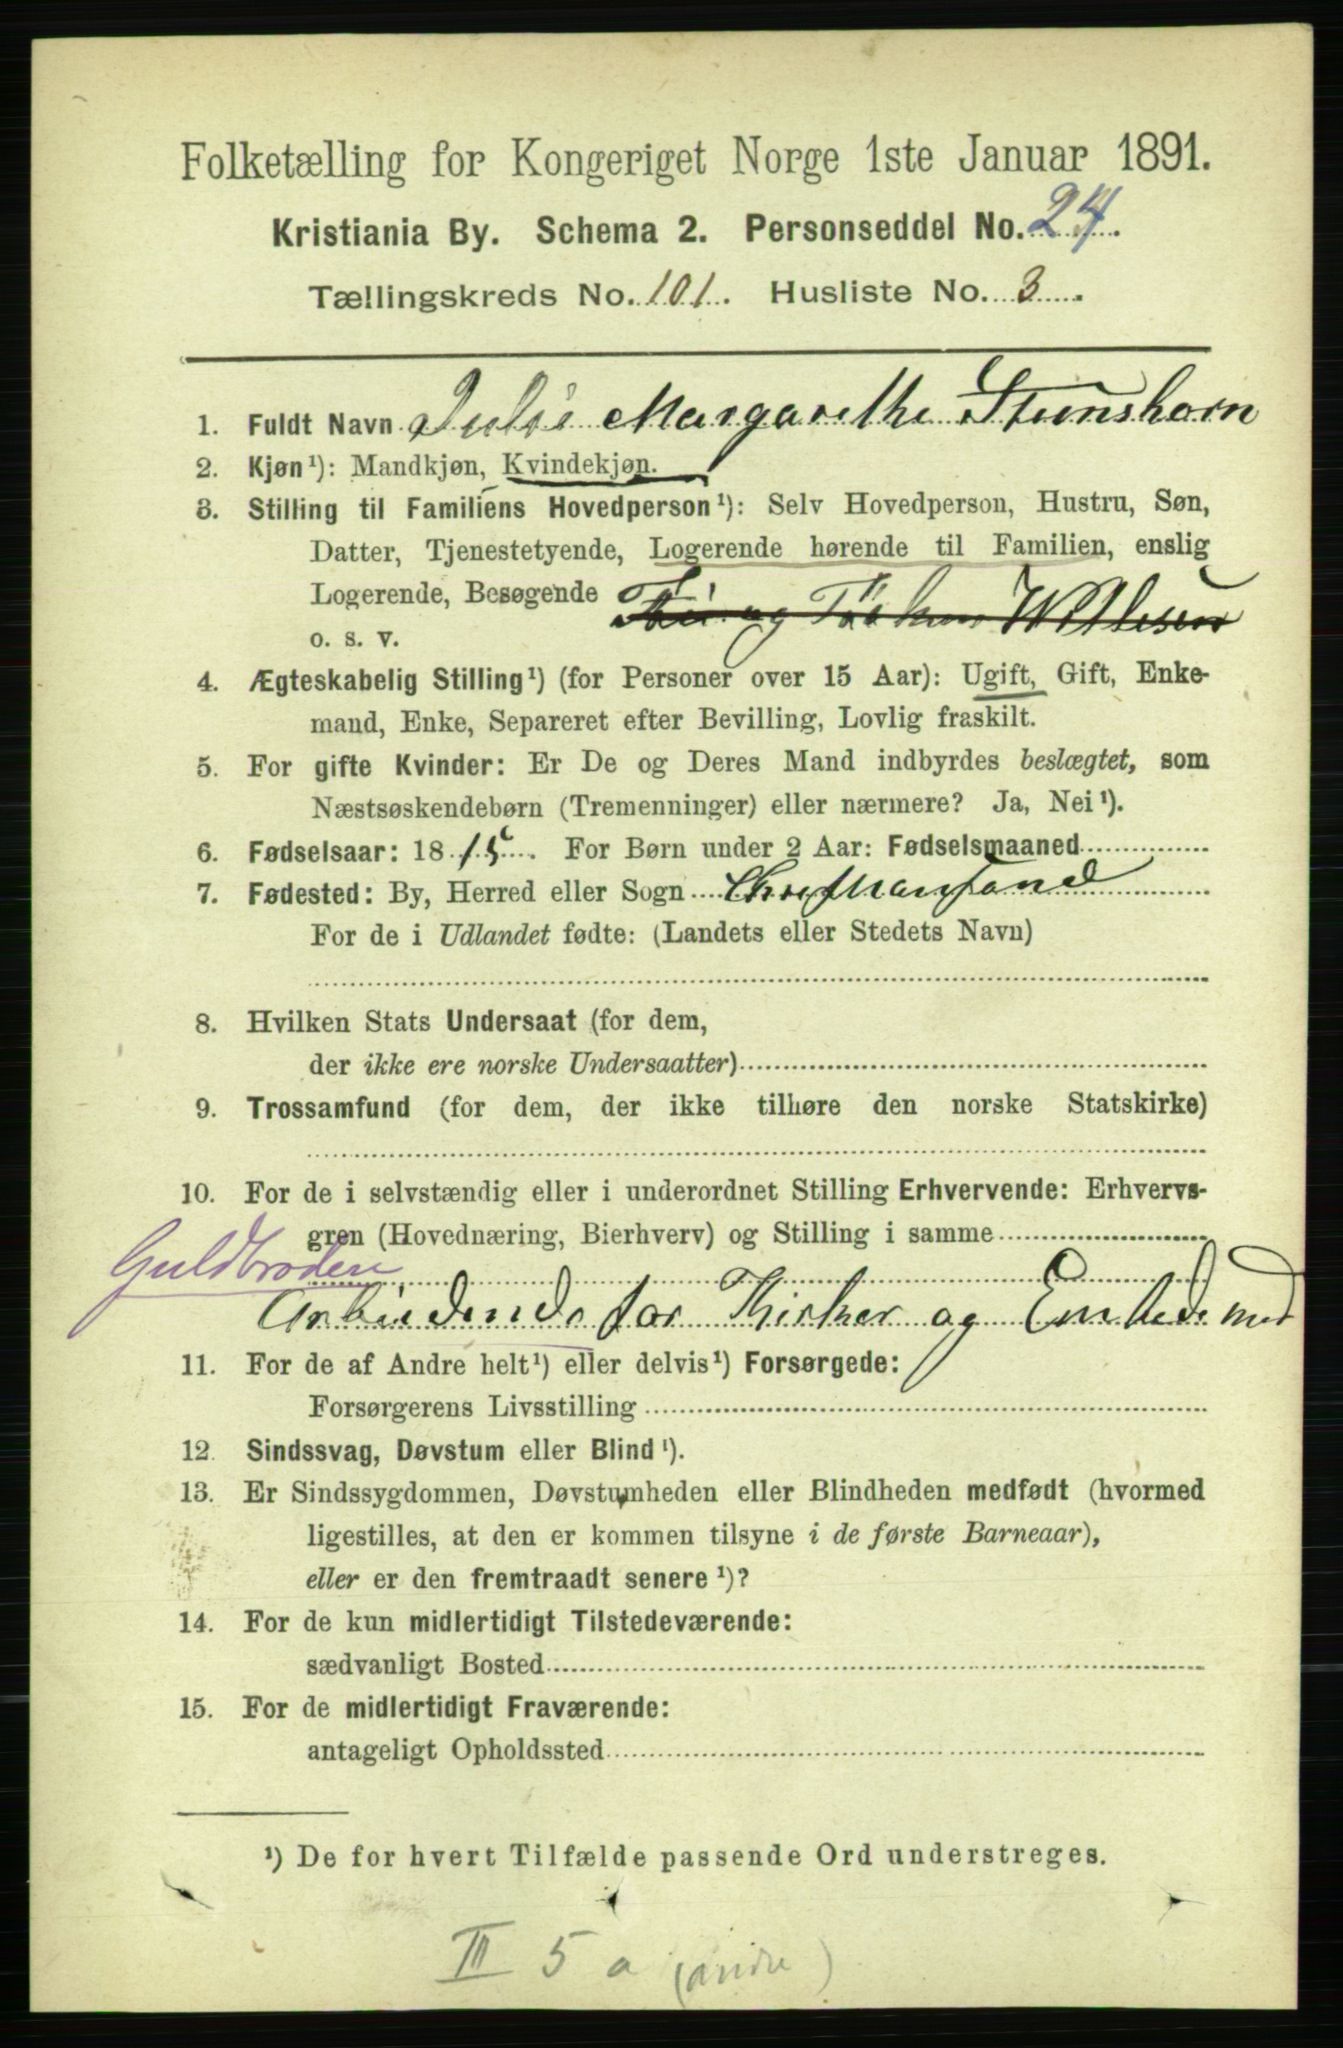 Folketælling for Kongeriget Norge 1ste Januar 1891.
Kristiania By. Schema 2. Personseddel No. 24.
Tællingskreds No. 101. Husliste No. 3.
1. Fuldt Navn Julie Margarethe Stenshorn
2. Kjøn¹): Mandkjøn, Kvindekjøn.
3. Stilling til Familiens Hovedperson¹): Selv Hovedperson, Hustru, Søn,
Datter, Tjenestetyende, Logerende hørende til Familien, enslig
Logerende, Besøgende
o. s. v.
4. Ægteskabelig Stilling¹) (for Personer over 15 Aar): Ugift, Gift, Enke-
mand, Enke, Separeret efter Bevilling, Lovlig fraskilt.
5. For gifte Kvinder: Er De og Deres Mand indbyrdes beslægtet, som
Næstsøskendebørn (Tremenninger) eller nærmere? Ja, Nei¹).
6. Fødselsaar: 1815. For Børn under 2 Aar: Fødselsmaaned
7. Fødested: By, Herred eller Sogn Christiansand
For de i Udlandet fødte: (Landets eller Stedets Navn)
8. Hvilken Stats Undersaat (for dem,
der ikke ere norske Undersaatter)
9. Trossamfund (for dem, der ikke tilhøre den norske Statskirke)
10. For de i selvstændig eller i underordnet Stilling Erhvervende: Erhvervs-
gren (Hovednæring, Bierhverv) og Stilling i samme
Guldbroderi
Arbeidende for Kirker og Embedsmed
11. For de af Andre helt¹) eller delvis¹) Forsørgede:
Forsørgerens Livsstilling
12. Sindssvag, Døvstum eller Blind¹).
13. Er Sindssygdommen, Døvstumheden eller Blindheden medfødt (hvormed
ligestilles, at den er kommen tilsyne i de første Barneaar),
eller er den fremtraadt senere¹)?
14. For de kun midlertidigt Tilstedeværende:
sædvanligt Bosted
15. For de midlertidigt Fraværende:
antageligt Opholdssted
¹) De for hvert Tilfælde passende Ord understreges.
III 5 a (andre)